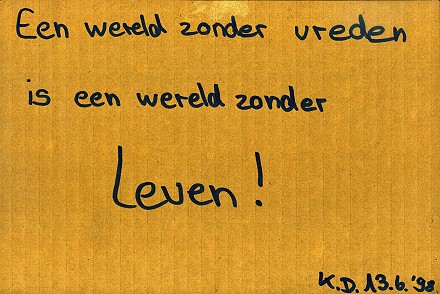 Een wereld zonder vreden
is een wereld zonder
Leven!
K.D. 13.6.'98